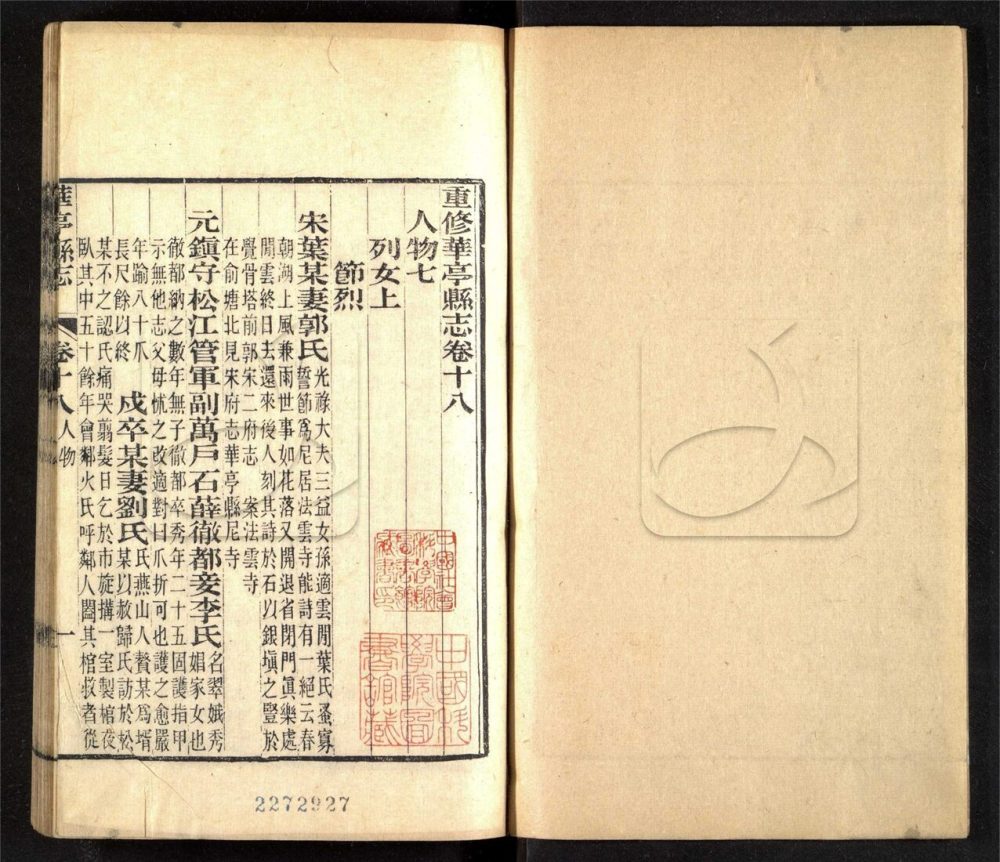 重修華亭縣志卷十八
人物七
列女上
節烈
宋葉某妻郭氏光祿大夫三益女孫適雲閒葉氏蚤寡
誓節爲尼居法雲寺能詩有一絕云春
朝湖上風兼雨世事如花落又開退省閉門眞樂處
閒雲終日去還來後人刻其詩於石以銀塡之豎於
覺骨塔前郭宋二府志 案法雲寺
在俞塘北見宋府志華亭縣尼寺
元鎭守松江管軍副萬戶石薛徹都妾李氏名翠娥秀
娼家女也
徹都納之數年無子徹都卒秀年二十五固護指甲
示無他志父母怵之改適對曰爪折可也護之愈嚴
年踰八十爪
長尺餘以終
戍卒某妻劉氏氏燕山人贅某爲壻
某以赦歸氏訪於松
某不之認氏痛哭翦髮日乞於市旋搆一室製棺夜
臥其中五十餘年會鄰火氏呼鄰人闔其棺救者從
華亭縣志
卷十八人物
一
中國科
學院圖
書館藏
2272927